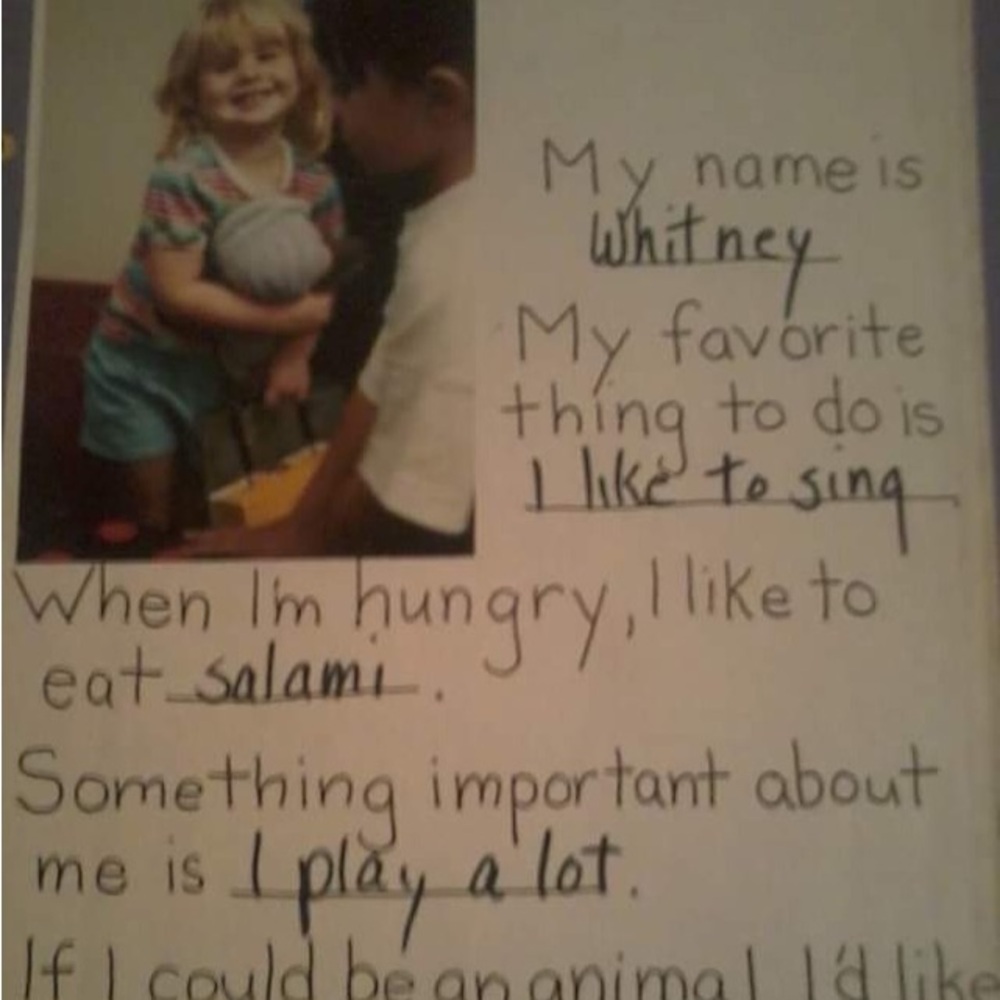 My name is
Whitney
My favorite
thing to do is
I like to sing
When I'm hungry, I like to
eat salami.
Something important about
me is I play a lot.
If I could be an animal I'd like